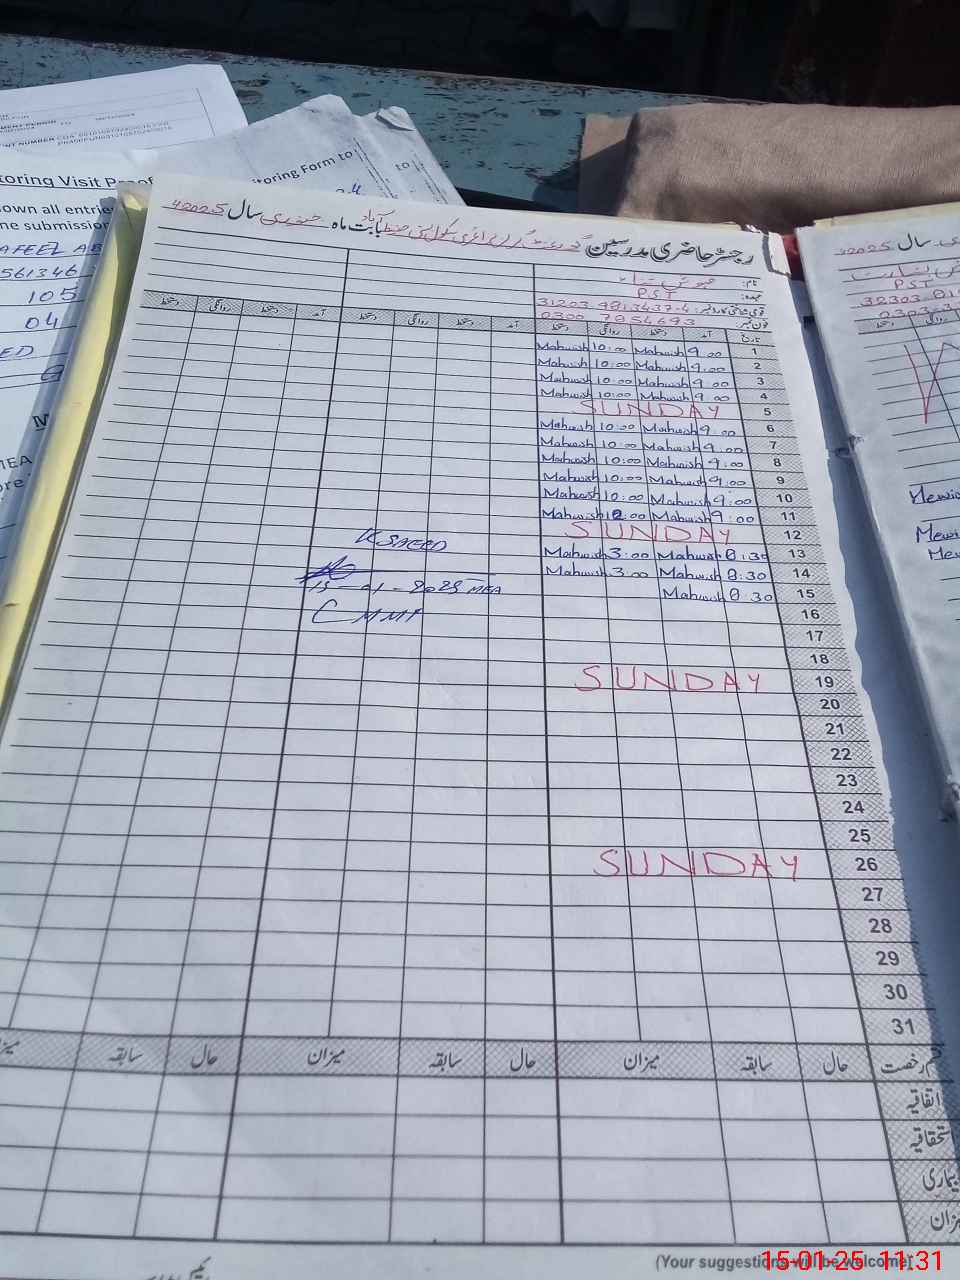 رجسٹر حاضری مدرسین گورنمنٹ گرلز پرائمری سکول بستی حفیظ آباد بابت ماہ جنوری سال 2025ء
نام: مہوش
عہدہ: PST
قومی شناختی کارڈ نمبر: 31203-9813437-4
فون نمبر: 0300 7854693
تاریخ آمد دستخط روانگی دستخط آمد دستخط روانگی دستخط آمد دستخط روانگی دستخط
1 9:00 Mahwish 10:00 Mahwish
2 9:00 Mahwish 10:00 Mahwish
3 9:00 Mahwish 10:00 Mahwish
4 9:00 Mahwish 10:00 Mahwish
5 SUNDAY
6 9:00 Mahwish 10:00 Mahwish
7 9:00 Mahwish 10:00 Mahwish
8 9:00 Mahwish 10:00 Mahwish
9 9:00 Mahwish 10:00 Mahwish
10 9:00 Mahwish 10:00 Mahwish
11 9:00 Mahwish 12:00 Mahwish
12 SUNDAY
13 8:30 Mahwish 3:00 Mahwish
14 8:30 Mahwish 3:00 Mahwish
15 8:30 Mahwish
16
17
18
19 SUNDAY
20
21
22
23
24
25
26 SUNDAY
27
28
29
30
31
SAEED
15-01-2025 MEA
قسم رخصت حال سابقہ میزان حال سابقہ میزان حال سابقہ
اتفاقیہ
استحقاقیہ
بیماری
میزان
(Your suggestions will be welcome)
سال 2025ء
PST
toring Visit
own all entrie
ne submission
AFEEZ AB
561346
105
04
ED
MEA
toring Form to
to
15-01-25 11:31